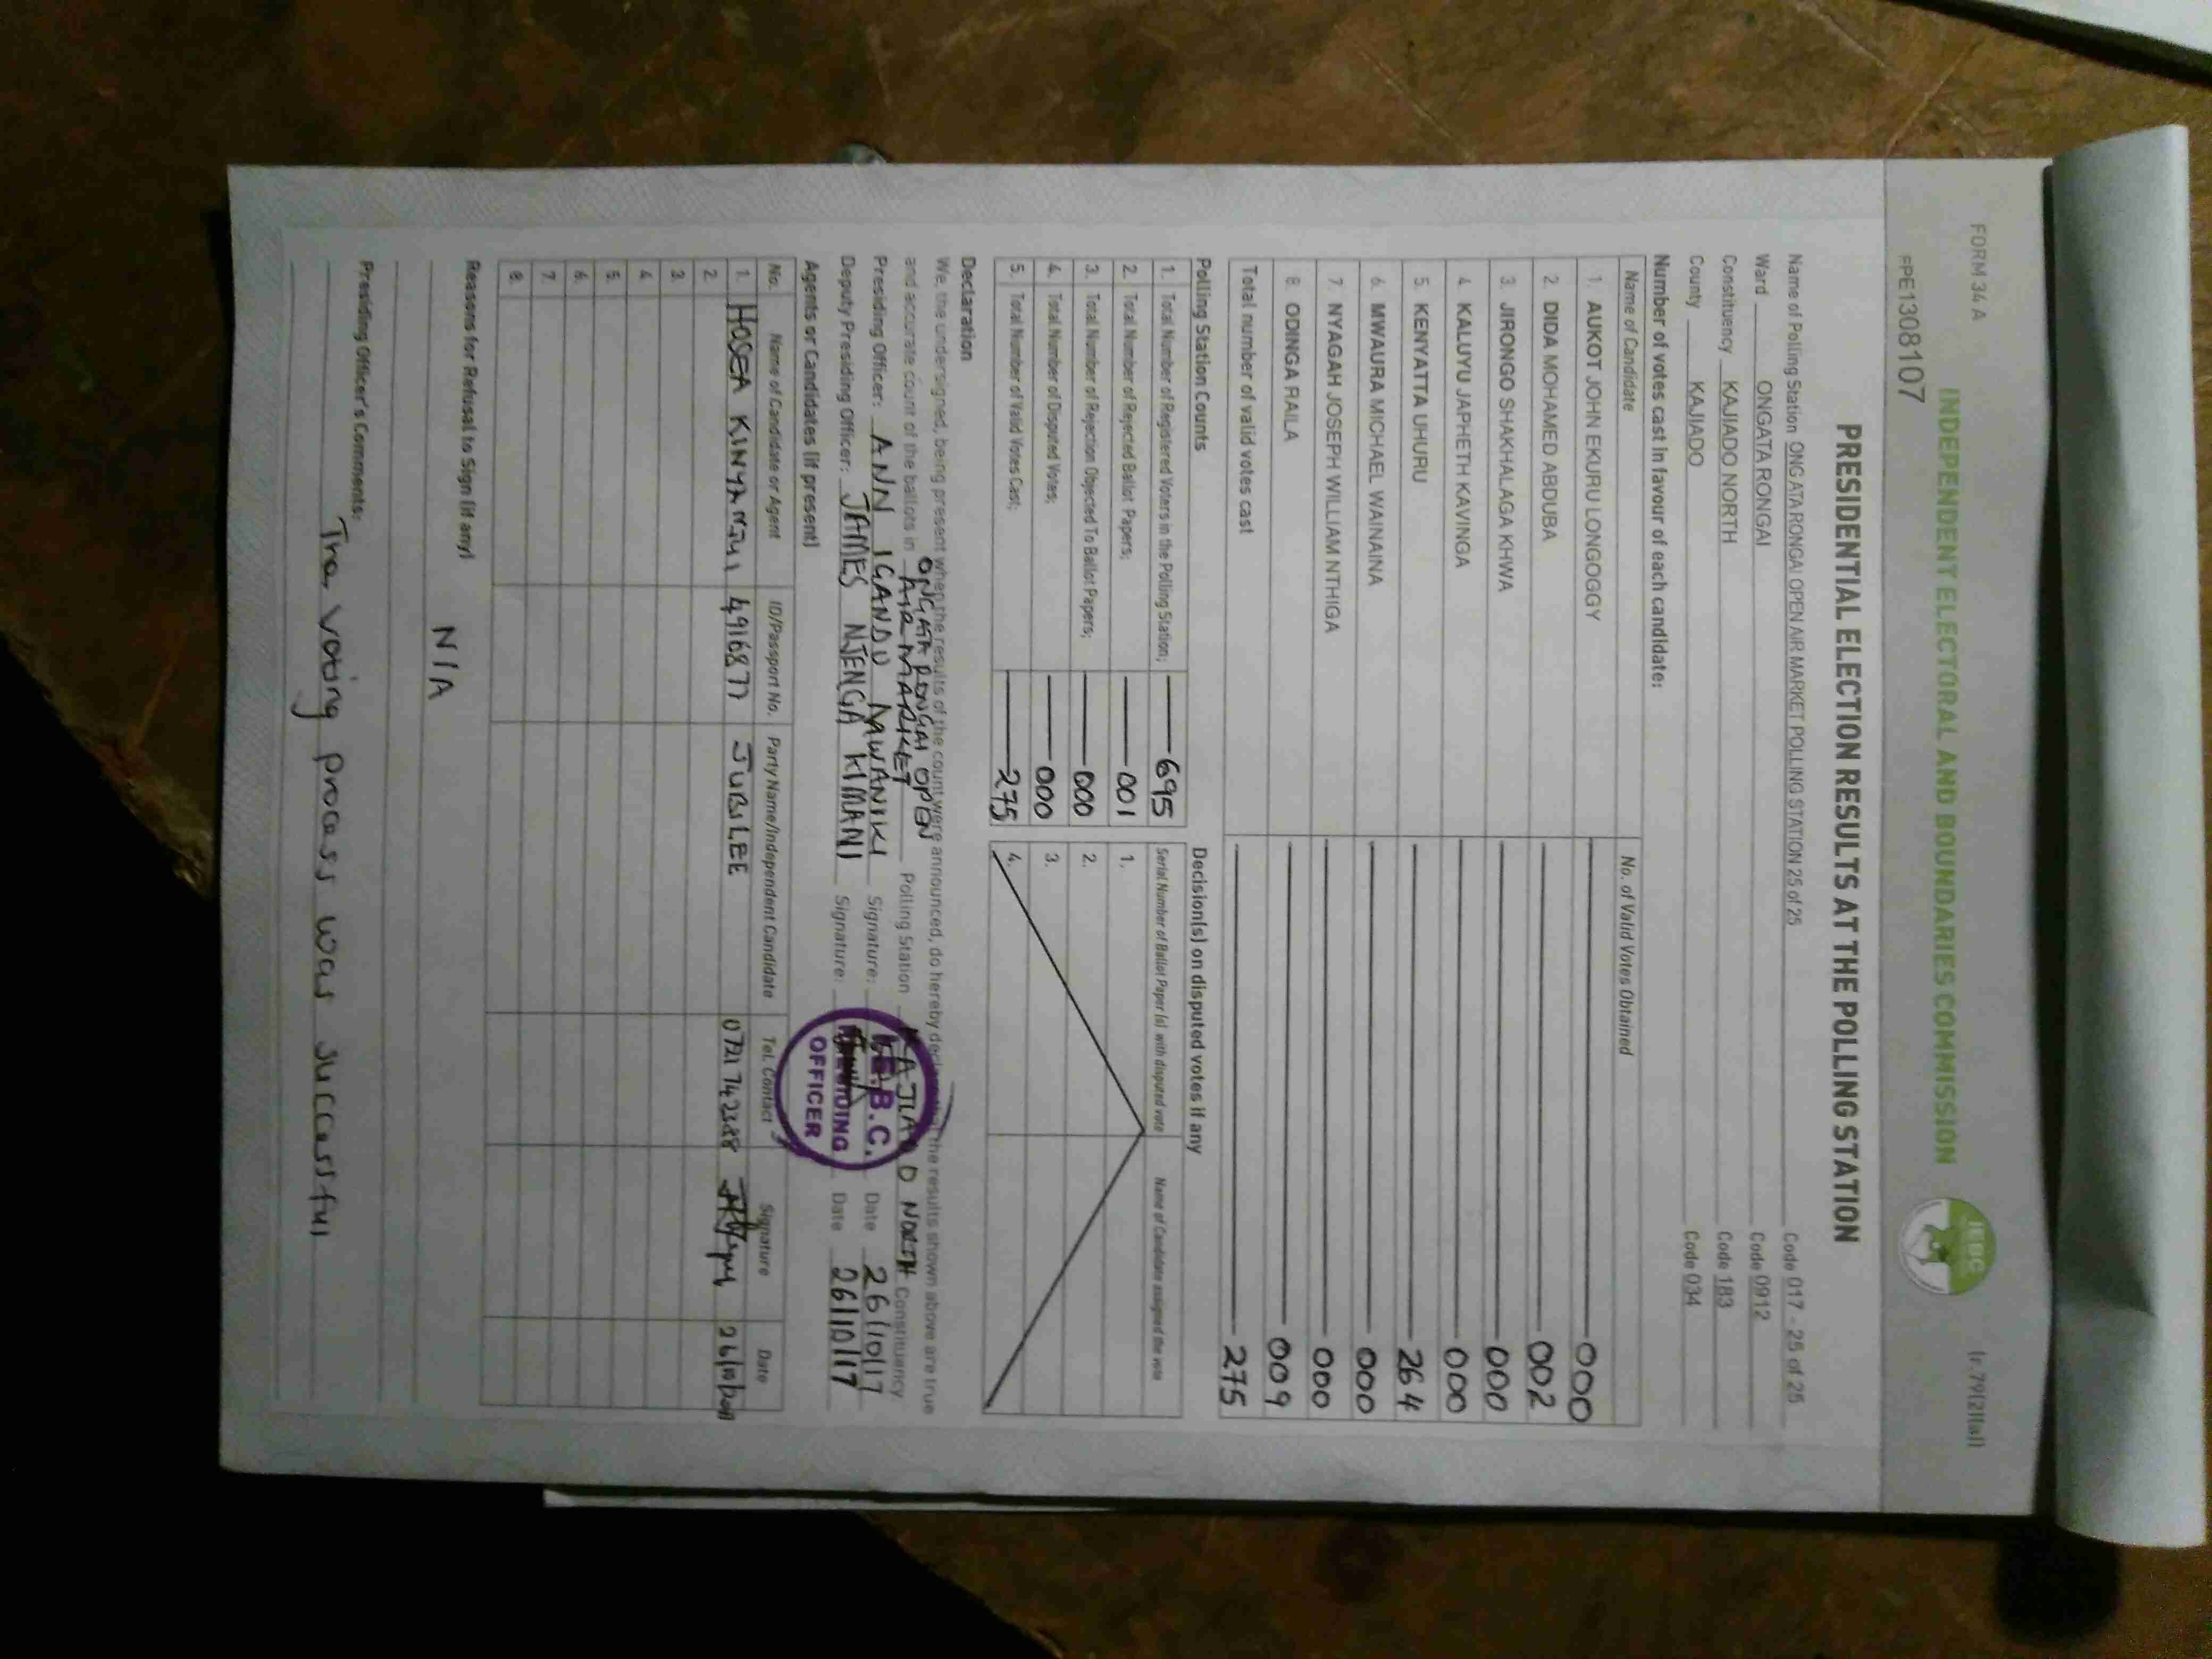 FORM 34 A
(r.79(2)(a))
INDEPENDENT ELECTORAL AND BOUNDARIES COMMISSION
IEBC
PE1308107
PRESIDENTIAL ELECTION RESULTS AT THE POLLING STATION
Name of Polling Station ONGATA RONGAI OPEN AIR MARKET POLLING STATION 25 of 25 Code 017 - 25 of 25
Ward ONGATA RONGAI Code 0912
Constituency KAJIADO NORTH Code 183
County KAJIADO Code 034
Number of votes cast in favour of each candidate:
Name of Candidate No. of Valid Votes Obtained
1. AUKOT JOHN EKURU LONGOGGY 000
2. DIDA MOHAMED ABDUBA 002
3. JIRONGO SHAKHALAGA KHWA 000
4. KALUYU JAPHETH KAVINGA 000
5. KENYATTA UHURU 264
6. MWAURA MICHAEL WAINAINA 000
7. NYAGAH JOSEPH WILLIAM NTHIGA 000
8. ODINGA RAILA 009
Total number of valid votes cast 275
Polling Station Counts
1. Total Number of Registered Voters in the Polling Station; 695
2. Total Number of Rejected Ballot Papers; 001
3. Total Number of Rejection Objected To Ballot Papers; 000
4. Total Number of Disputed Votes; 000
5. Total Number of Valid Votes Cast; 275
Decision(s) on disputed votes if any
Serial Number of Ballot Paper (s) with disputed vote Name of Candidate assigned the vote
1.
2.
3.
4.
Declaration
We, the undersigned, being present when the results of the count were announced, do hereby declare that the results shown above are true
and accurate count of the ballots in ONGATA RONGAI OPEN AIR MARKET Polling Station KAJIADO NORTH Constituency
Presiding Officer: ANN IGANDU MWANIKI Signature: Date 26/10/17
Deputy Presiding Officer: JAMES NJENGA KIMANI Signature: Date 26/10/17
I.E.B.C.
PRESIDING
OFFICER
Agents or Candidates (if present)
No. Name of Candidate or Agent ID/Passport No. Party Name/Independent Candidate Tel. Contact Signature Date
1. HOSEA KINYANJUI 4916877 JUBILEE 0721742388
2.
3.
4.
5.
6.
7.
8.
Reasons for Refusal to Sign (if any)
N/A
Presiding Officer's Comments:
The voting process was successful